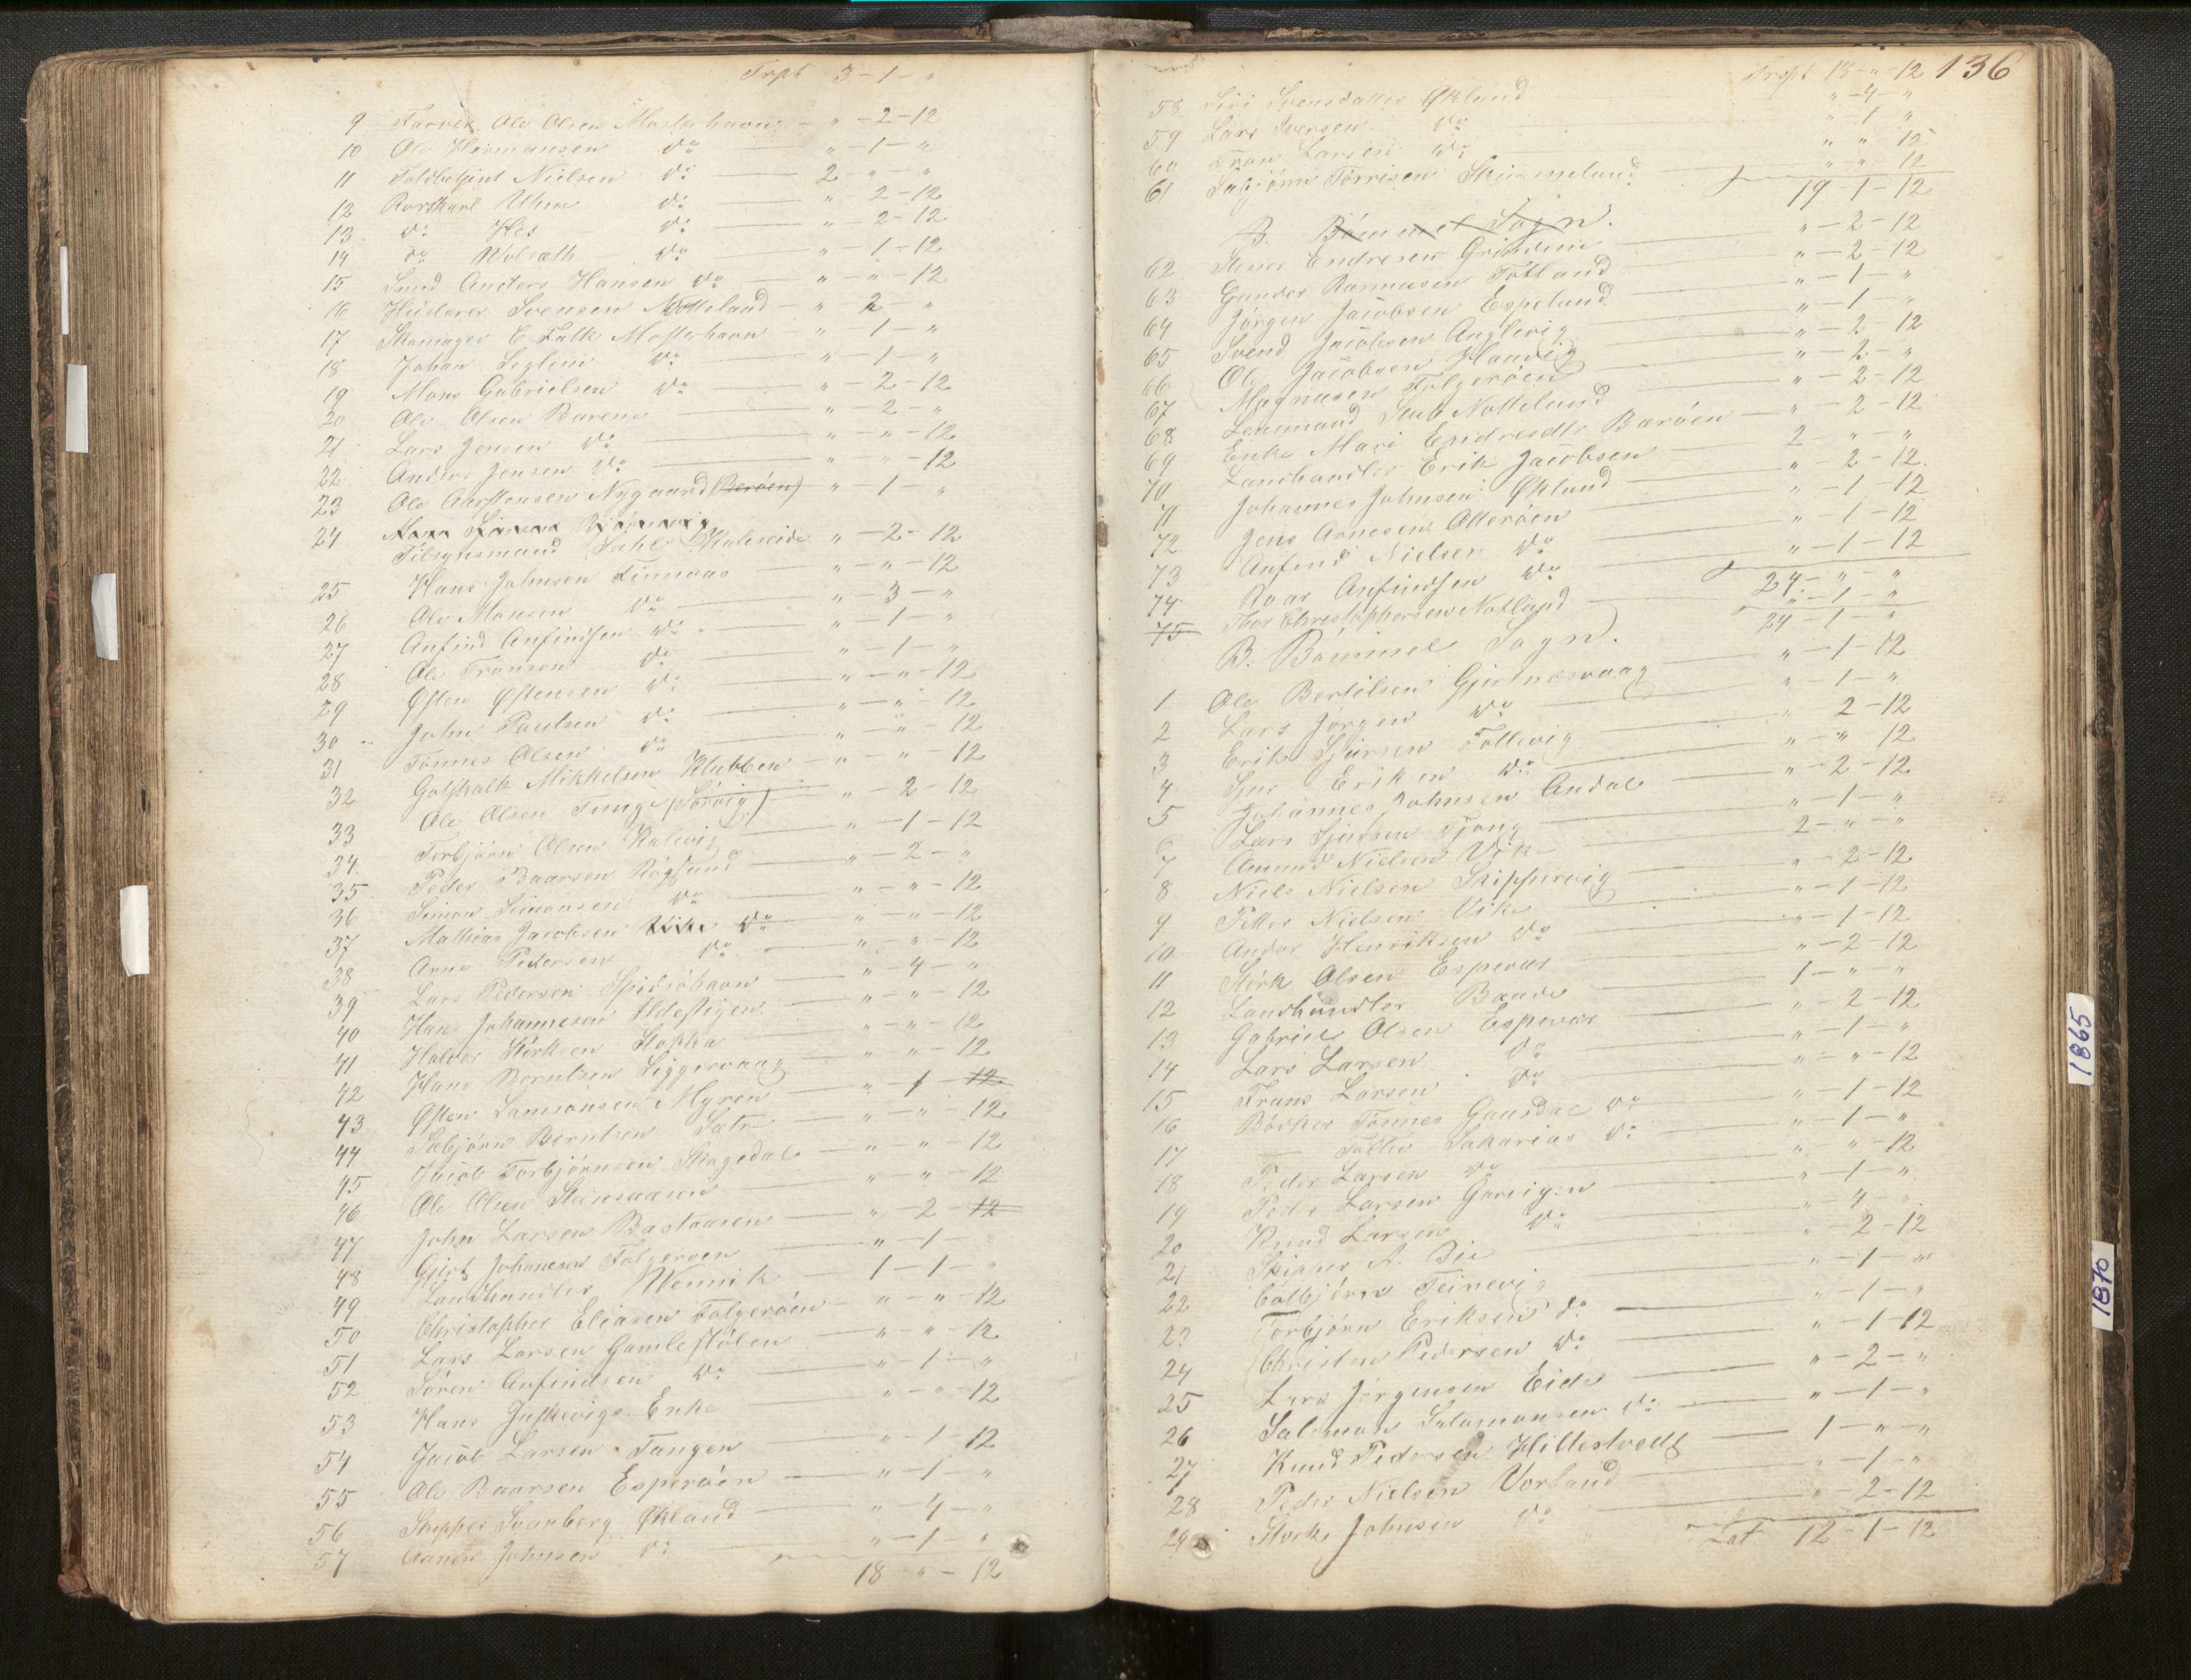 Trpt 3 - 1 - "
9 Farver Ole Olsen Mosterhavn - " - 2 - 12
10 Ole Hermansen do " - 1 - "
11 Toldbetjent Nielsen do 2 - " - "
12 Rorskarl Uhm do " - 2 - 12
13 do His do " - 2 - 12
14 do Wolrath do " - 1 - 12
15 Smed Anders Hansen do " - " - 12
16 Huderer Svensen Notteland " - 2 - "
17 Skomager E Falk Mosterhavn - " - 1 - "
18 Johan Seglem do " - 1 - "
19 Mons Gabrielsen do " - 2 - 12
20 Ole Olsen Barene " - 2 - "
21 Lars Jensen do " - " - 12
22 Anders Jensen do " - " - 12
23 Ole Aarstensen Nygaard (Berøen) " - 1 - "
24 Hans
Tilsynsmand Dahle Kuleseide " - 2 - 12
25 Hans Johnsen Finnaas " - " - 12
26 Ole Monsen do " - 3 - "
27 Anfind Anfindsen do " - 1 - "
28 Ole Tronsen do " - 1 - "
29 Østen Østensen do " - " - 12
30 John Paulsen do " - " - 12
31 Tønnes Olsen do " - " - 12
32 Gotskalk Mikkelsen Klubben " - " - 12
33 Ole Olsen Tungi (Sørvig) " - 2 - 12
34 Torbjørn Olsen Kulevig " - 1 - 12
35 Peder Baarsen Røgsund " - 2 - "
36 Simon Simonsen do " - " - 12
37 Mathias Jacobsen do " - " - 12
38 Arne Pedersen do " - " - 12
39 Lars Pedersen Spidsøhavn " - 4 - "
40 Hans Johannesen Ildestigen " - " - 12
41 Halvor Størksen Hopka " - " - 12
42 Hans Berntsen Siggervaag " - " - 12
43 Østen Samsonsen Myren " - 1 - 12
44 Sæbjørn Berntsen Sætre " - " - 12
45 Jacob Torbjørnsen Skogedal " - " - 12
46 Ole Olsen Steensaasen " - " - 12
47 John Larsen Bastaasen " - 2 - 12
48 Gjert Johannesen Folgerøen " - 1 - "
49 Landhandler Wennik 1 - 1 - "
50 Christopher Eliasen Folgerøen " - " - 12
51 Lars Larsen Gamlestølen " - " - 12
52 Søren Anfindsen do " - 1 - "
53 Hans Juskevigs Enke " - " - 12
54 Jacob Larsen Tangen " - 1 - 12
55 Ole Baarsen Esperøen " - 1 - "
56 Skipper Svanberg Økland " - 4 - "
57 Aamon Johnsen do " - 1 - "
18 - " - 12
Trspt 18 - " - 12 136
58 Siri Svensdatter Økland " - 4 - "
59 Lars Iversen do " - 1 - "
60 Tron Larsen do " - " - 12
61 Sæbjørn Torrisen Skimmeland " - " - 12
19 - 1 - 12
B. Bømmel Sogn.
62 Stener Endresen Grindem " - 2 - 12
63 Gunder Rasmusen Totland " - 2 - 12
64 Jørgen Jacobsen Espeland " - 1 - "
65 Svend Jacobsen Anglevig " - 1 - "
66 Ole Jacobsen Haavig " - 2 - 12
67 Magnusen Folgerøen " - 2 - "
68 Lensmand Stub Notteland " - 2 - 12
69 Enke Mari Endresdtr Barøen " - 2 - 12
70 Landhandler Erik Jacobsen 2 - " - "
71 Johannes Johnsen Økland " - 2 - 12
72 Jens Arnesen Otterøen " - 1 - 12
73 Anfend Nielsen do " - 1 - 12
74 Roar Anfindsen do " - 1 - 12
24 - " - "
75 Thor Christophersen Notland " - 1 - "
24 - 1 - "
B. Bømmel Sogn.
1 Ole Bertilsen Gjertnesvaag " - 1 - 12
2 Lars Jørgen do " - 1 - "
3 Erik Sjursen Follevig " 2 - 12
4 Sjur Eriksen do " - " - 12
5 Johannes Johnsen Andal " - 2 - 12
6 Lars Sjursen Tjong " - 1 - "
7 Amund Nielsen Vik 2 - " - "
8 Niels Nielsen Skippervig " - 2 - 12
9 Petter Nielsen Vik " - 1 - 12
10 Andor Henriksen do " - 1 - 12
11 Størk Olsen Espevær " - 2 - 12
12 Landhandler Baade 1 - " - "
13 Gabriel Olsen Espevær " - 2 - 12
14 Lars Larsen do " - 1 - "
15 Frans Larsen do " - " - 12
16 Bødker Tønnes Gausdal do " - 1 - 12
17 Sakarias do " - 1 - "
18 Peder Larsen do " - " - 12
19 Peder Larsen Gareigen " - 1 - "
20 Knud Larsen do " - 4 - "
21 Skipper A. Bie " - 2 - 12
22 Colbjørn Teinevig " - 1 - "
23 Torbjørn Eriksen do " - 1 - "
24 Christen Pedersen do " - 1 - 12
25 Lars Jørgensen Eide " - 2 - "
26 Salomon Salomonsen do " - 1 - "
27 Knud Pedersen Hillestvedt 1 - " - "
28 Peder Nielsen Vorland " - 1 - "
29 Størk Johnsen do " - 2 - 12
Lat 12 - 1 - 12
1865
1870